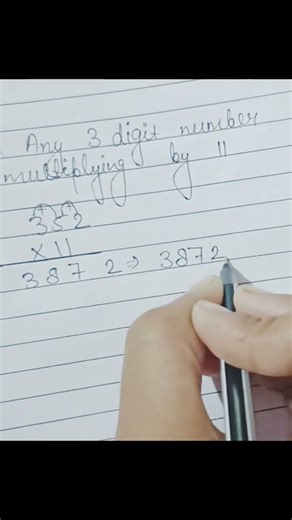 Any 3 digit number
multiplying by 11
352
x 11
3 8 7 2 ⇒ 3872